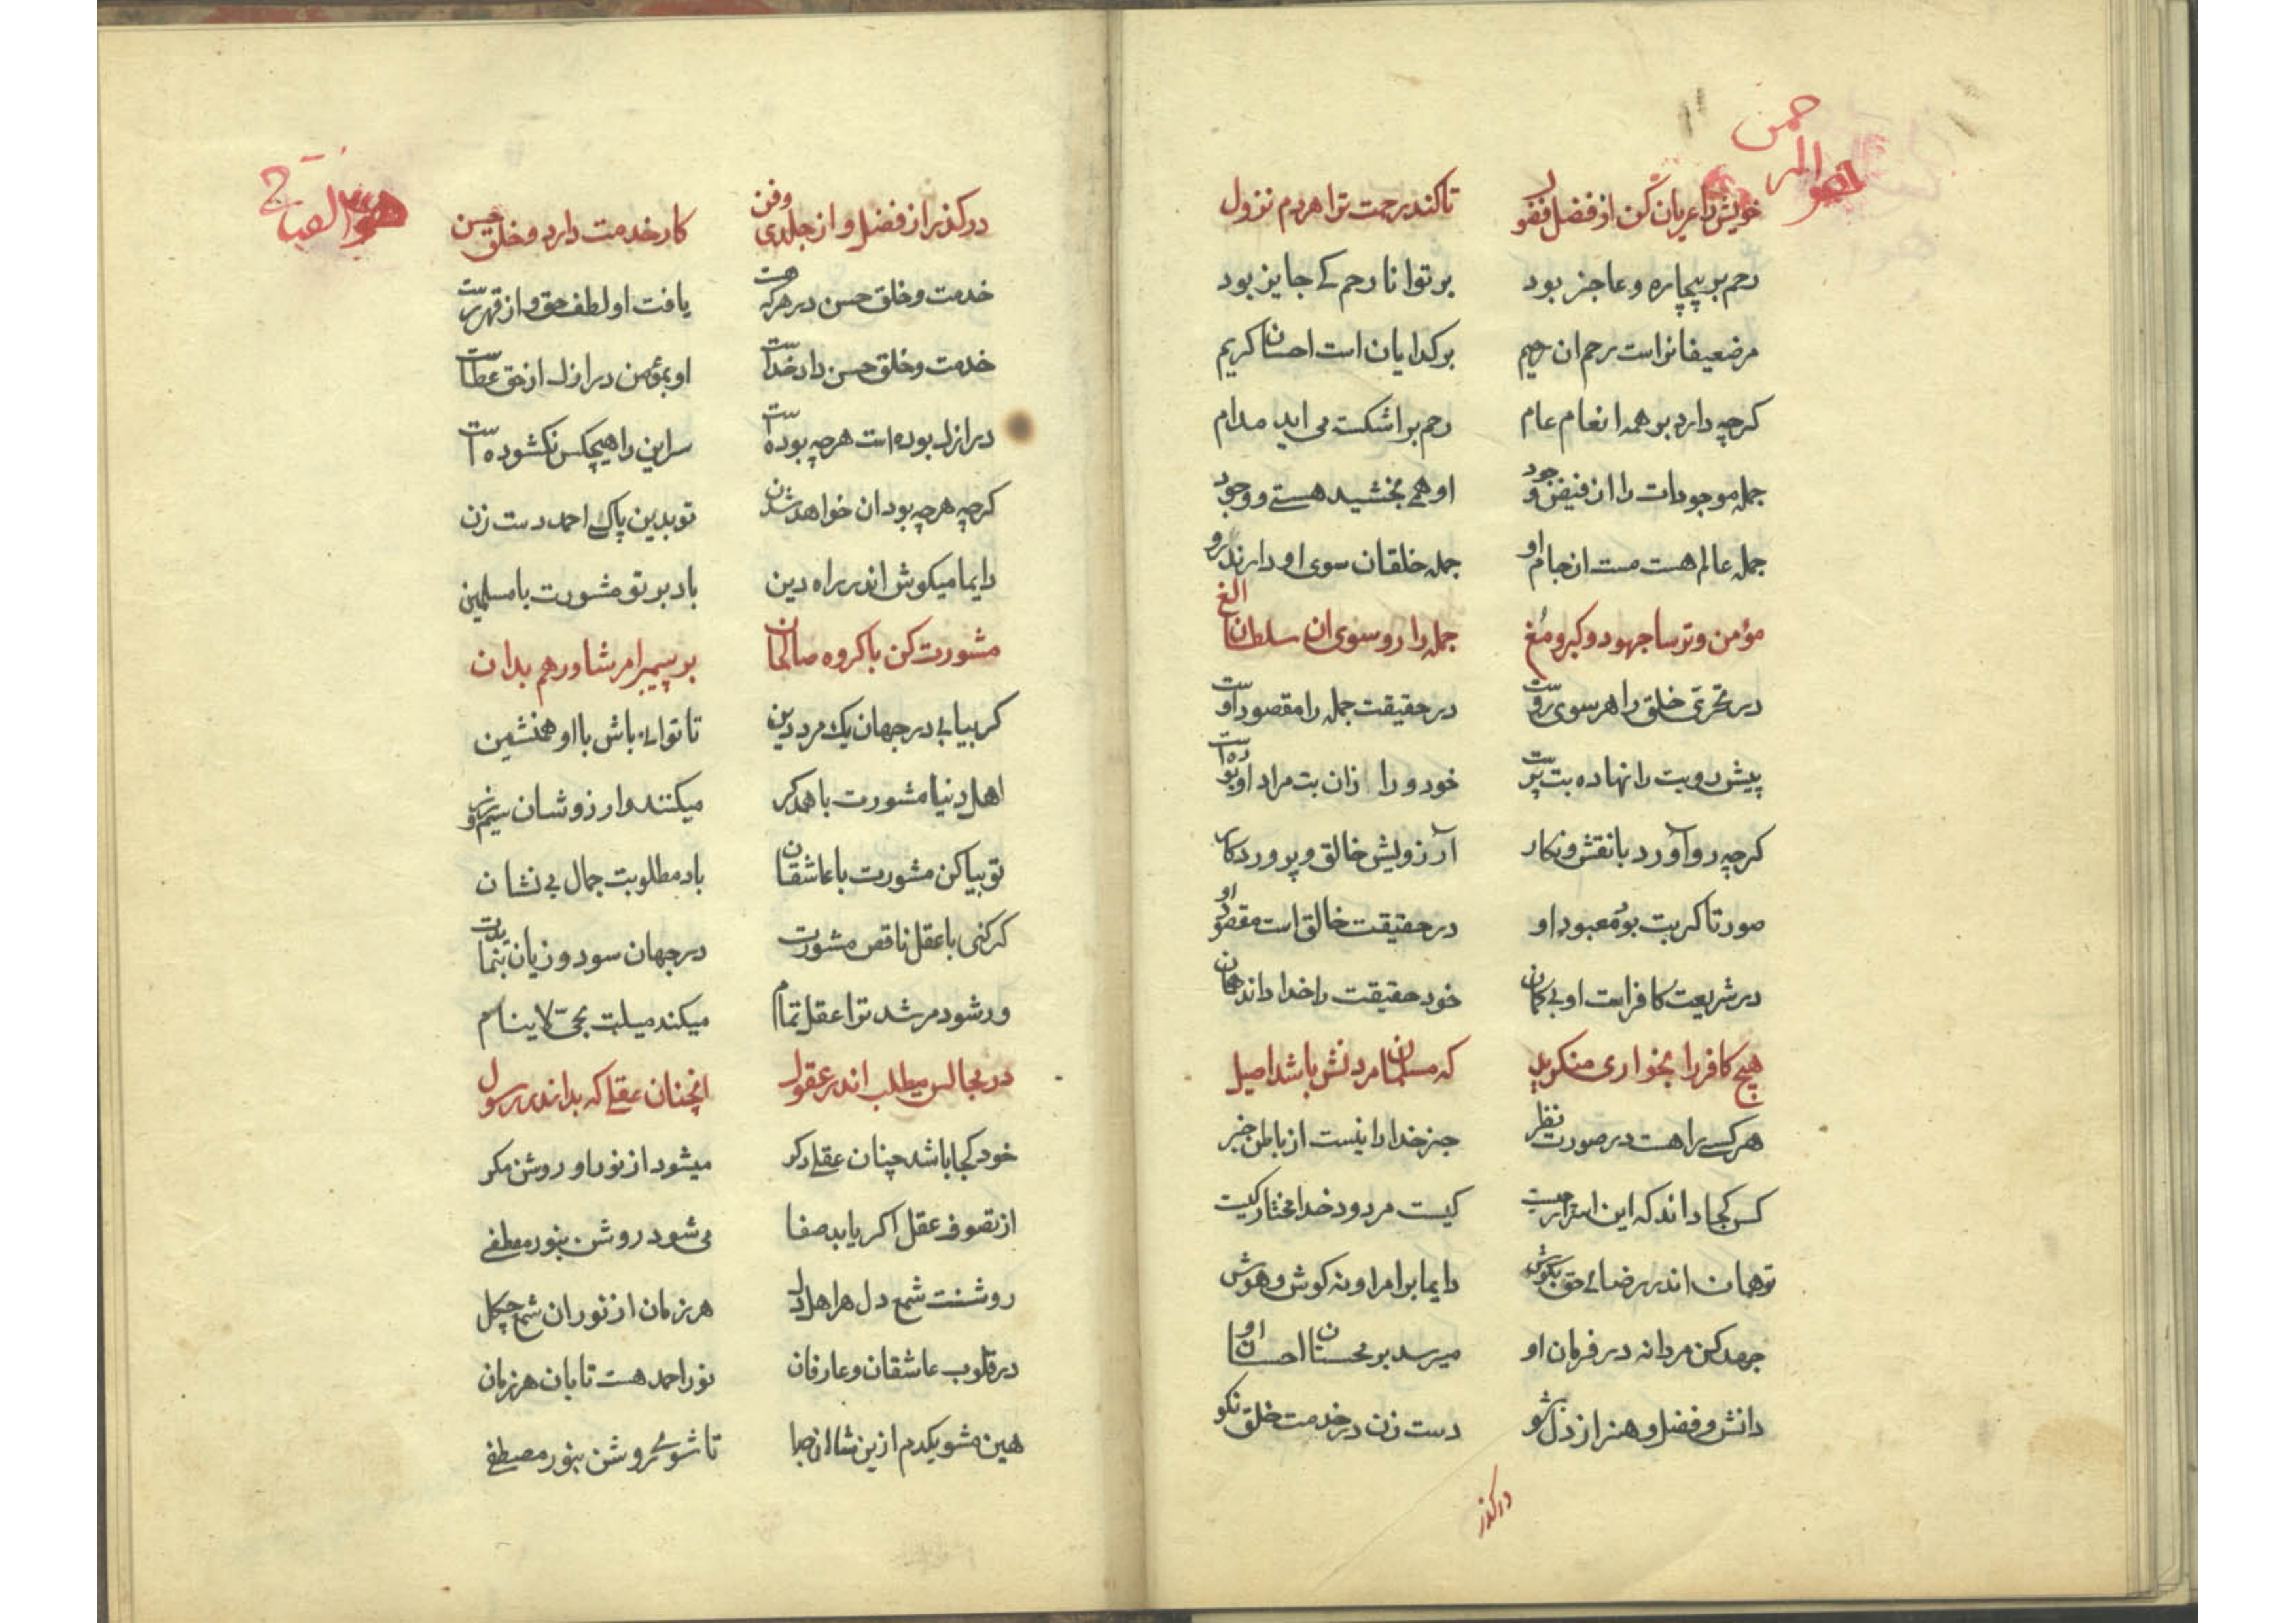 هو الرحمن
خویش را عریان کن از فضل فضول تا کند رحمت ترا هر دم نزول
رحم بر بیچاره و عاجز بود بر توانا رحم کے جایز بود
مر ضعیفانراست رحم ان رحیم بر کدایان است احسان کریم
کرچه دارد بر همه انعام عام رحم بر اشکست می اید مدام
جمله موجودات را از فیض وجود او همی بخشید هستے و وجود
جمله عالم هست مست از جام او جمله خلقان سوی او دارند رو
مؤمن و ترسا جهود و کبر و مُغ جمله را رو سوی ان سلطان الغ
در تحرّی خلق را هر سوی روست در حقیقت جمله را مقصود اوست
پیش رو بت را نهاده بت پرست خود و را زان بت مراد او بوده است
کرچه رو آورد با نقش و نکار آرزویش خالق و پروردکار
صورتا کر بت بود معبود او در حقیقت خالق است مقصود او
در شریعت کافر است او بی کمان خود حقیقت را خدا داند همان
هیچ کافر را بخواری منکرید که مسلمان مردنش باشد امید
هر کسے را هست در صورت نظر جز خدا را نیست از باطن خبر
کس کجا داند که این اسرار چیست کیست مردود خدا مختار کیست
تو همان اندر رضائے حق بکوش دایما بر امر او نه کوش و هوش
جهد کن مردانه در فرمان او میرسد بر محسنان احسان او
دانش و فضل و هنر از دل بشو دست زن در خدمت خلق نکو
درکذر
هو الفتاح
درکذر از فضل و از جلدی و فن کار خدمت دارد و خلق حسن
خدمت و خلق حسن در هر که هست یافت او لطف حق و از قهر رست
خدمت و خلق حسن داد خداست او بمؤمن در ازل از حق عطاست
در ازل بوده است هرچه بوده است سر این را هیچکس نکشوده است
کرچه هرچه بود ان خواهد شدن تو بدین پاک احمد دست زن
دایما میکوش اندر راه دین باد بر تو مشورت با مسلمین
مشورت کن با کروه صالحان بر پیمبر امر شاورهم بدان
کر بیابی در جهان یک مرد دین تا توانی باش با او همنشین
اهل دنیا مشورت با همدکر میکنند و ارزوشان سیم و زر
تو بیا کن مشورت با عاشقان باد مطلوبت جمال بی نشان
کر کنی با عقل ناقص مشورت در جهان سود و زیان بنمایدت
ور شود مرشد ترا عقل تمام میکند میلت بحیّ لاینام
در مجالس میطلب اندر عقول انچنان عقلے که بد اندر رسول
خود کجا باشد چنان عقلے دکر میشود از نور او روشن مکر
از تصوف عقل اکر یابد صفا می شود روشن بنور مصطفے
روشنت شمع دل هر اهل دل هر زمان از نور ان شمع چکل
در قلوب عاشقان و عارفان نور احمد هست تابان هر زمان
هین مشو یکدم ازین شاهان جدا تا شوی روشن بنور مصطفے